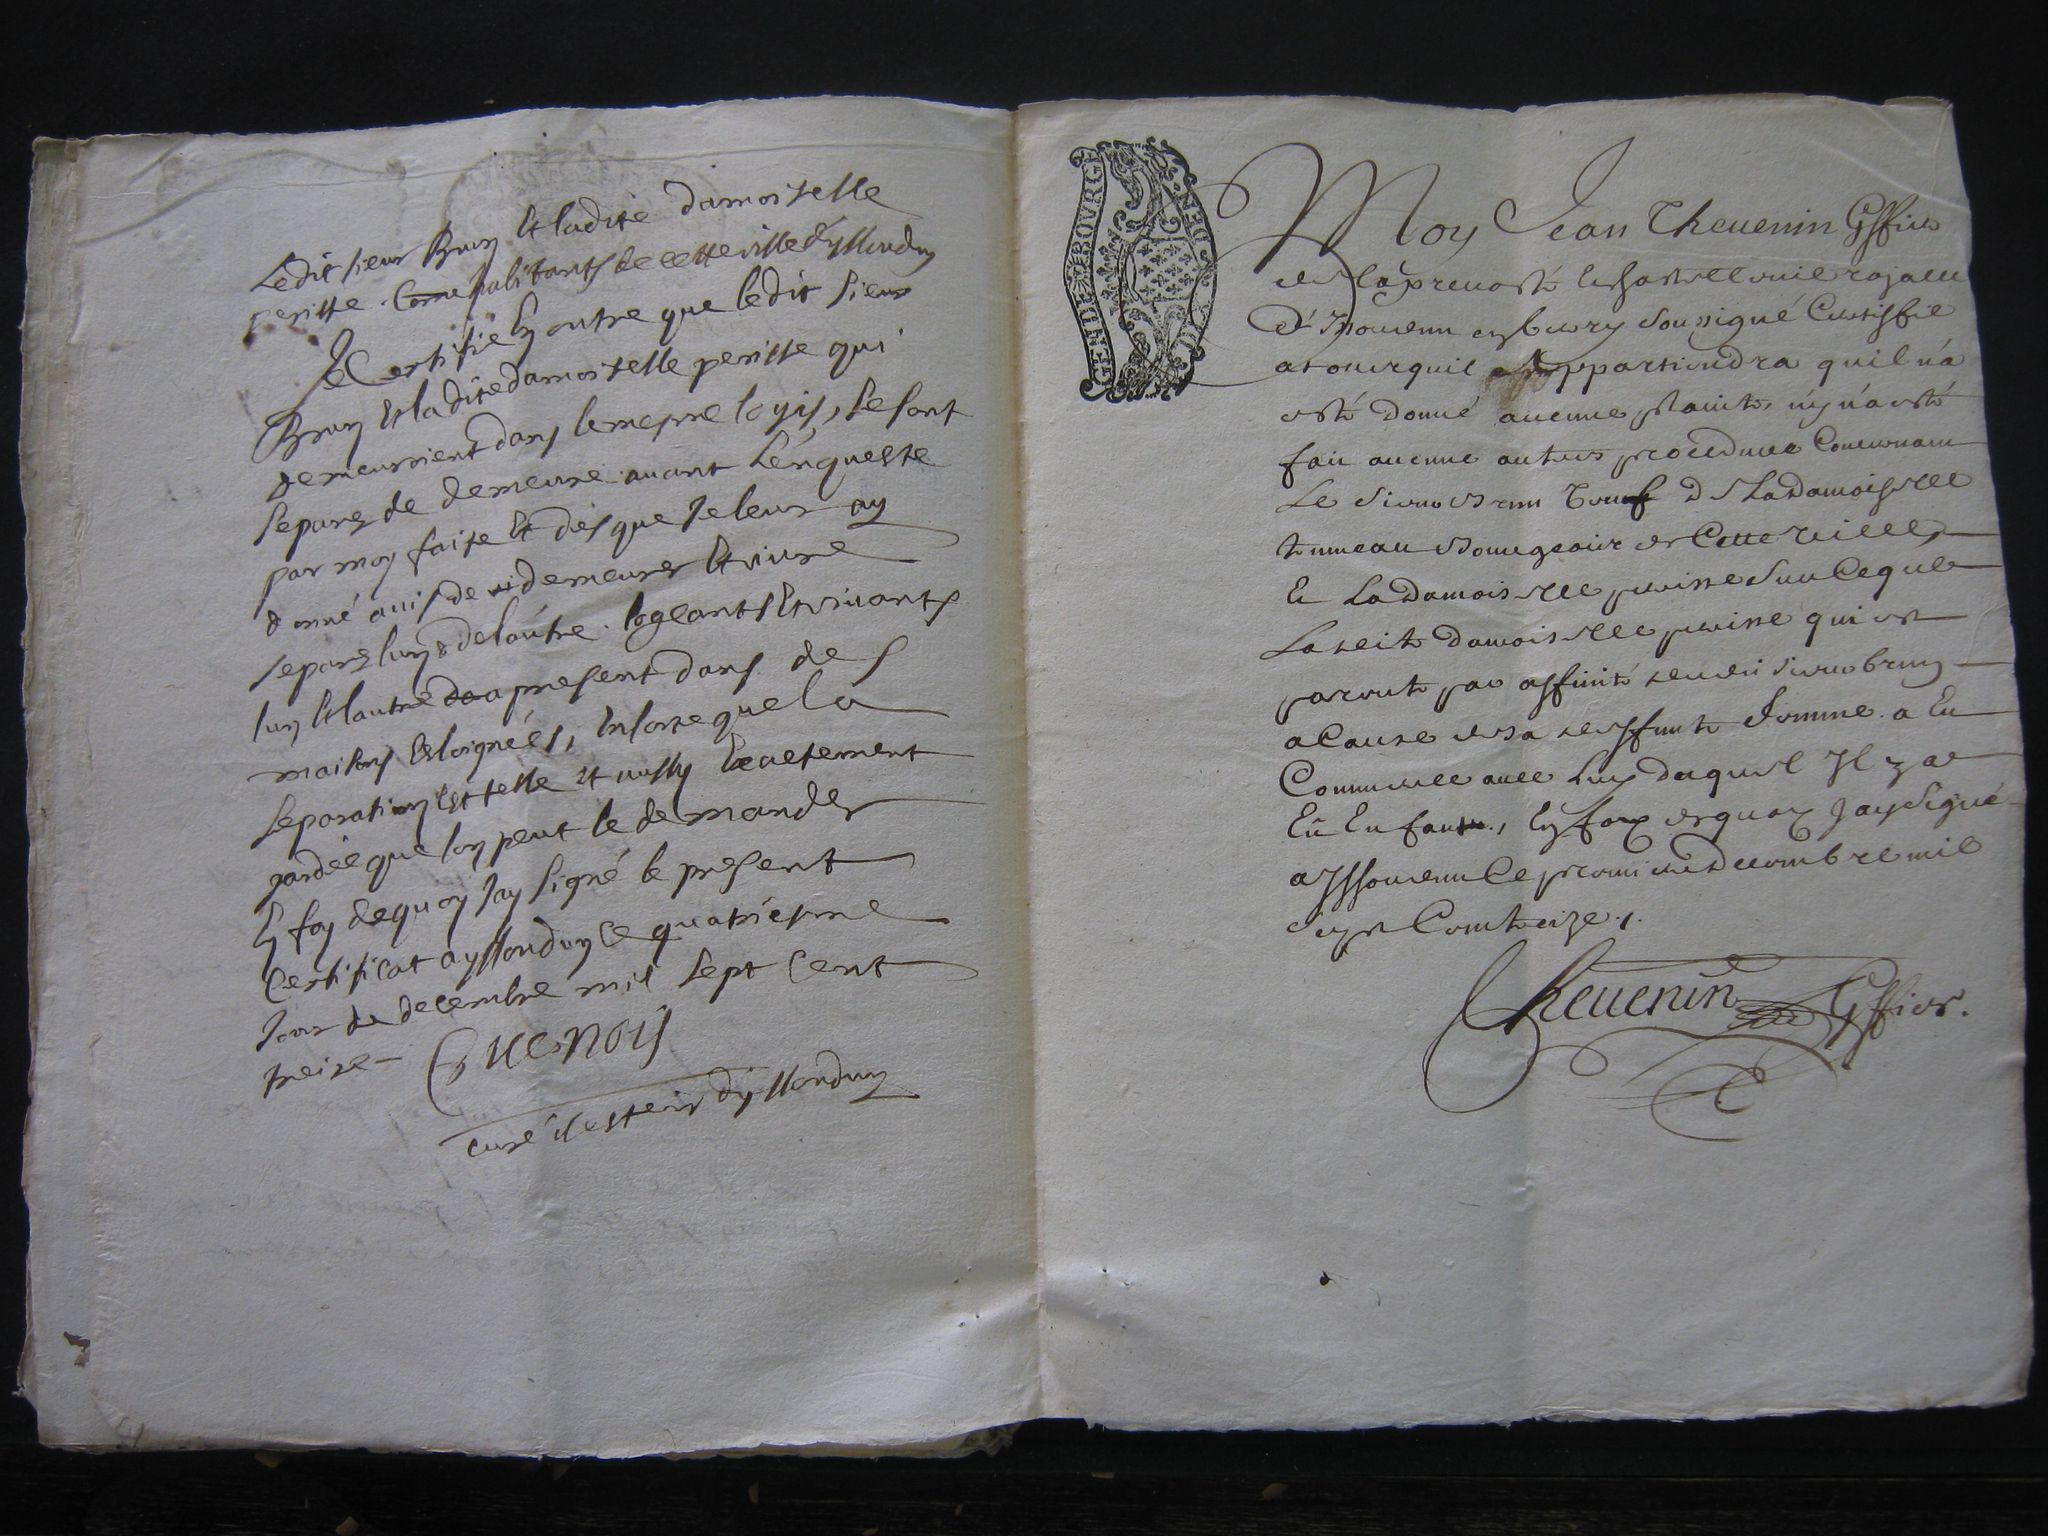 Ledit sieur Brun Et ladite damoiselle
perisse. Come habitants de cette ville d'yssoudun
Je Certifie En outre que ledit sieur
Brun Et ladite damoiselle perisse qui
demeuroient dans le mesme logis, se sont
separez de demeure avant L'enqueste
par moy faite Et des que Je leur ay
donné avis de demeurer Et vivre
separez l'un de l'autre. logeants Et vivants
l'un Et l'autre a present dans des
maisons Esloignées, En sorte que la
separation Est telle Et aussy Exactement
gardée que l'on peut le demander
En foy de quoy J'ay signé le present
Certificat a yssoudun ce quatriesme
Jour de decembre mil sept cent
treize
curé d'yssoudun
GEN DE BOURGES
Moy Jean Thevenin Gffier
de la prevosté royalle
soussigné Certiffie
a tous quil appartiendra quil n'a
esté donné aucune plainte, ny n'a esté
fait aucune autres procedures Concernant
Le sieur Brun de La Damoiselle
de Cette Ville,
Et La Damoiselle perisse sur Ce que
La dite damoiselle perisse qui est
parente par affinité dudit sieur brun
a Cause de sa deffunte femme. a Eu
Commerce avec luy duquel Il y a
Eû Enfant, En foy de quoy J'ay signé
a Yssoudun Ce premier decembre mil
sept Cent treize.
Thevenin Gffier.